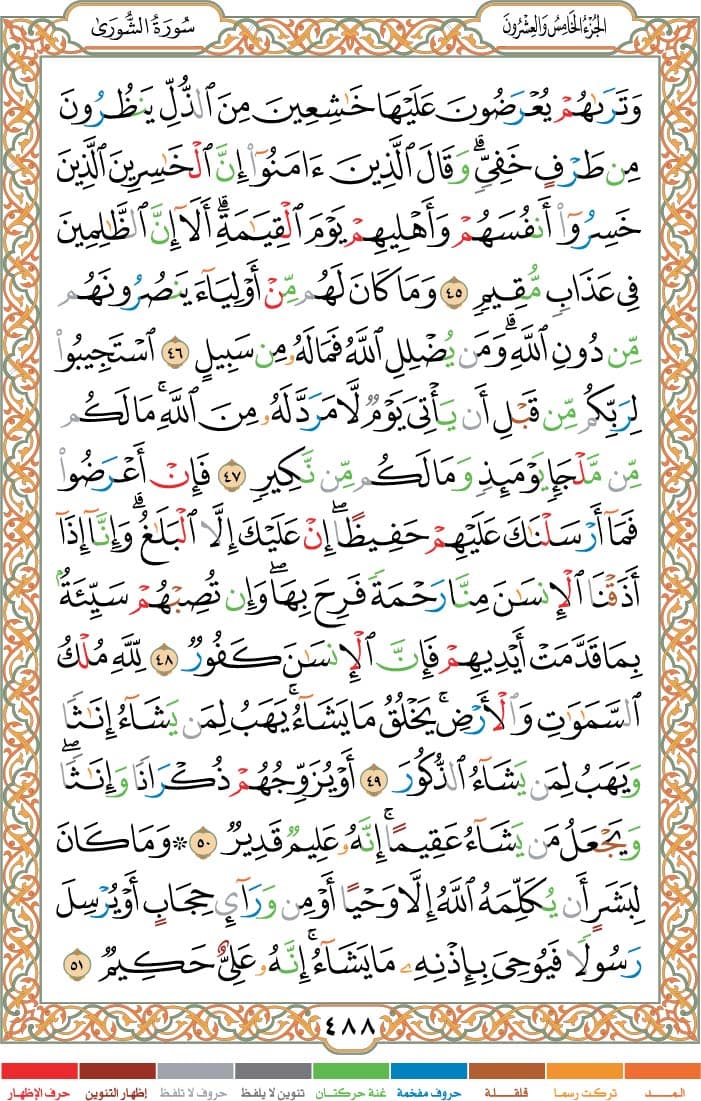 الجزء الخامس والعشرون
سورة الشورى
وَتَرَىٰهُمْ يُعْرَضُونَ عَلَيْهَا خَٰشِعِينَ مِنَ ٱلذُّلِّ يَنظُرُونَ
مِن طَرْفٍ خَفِىٍّۗ وَقَالَ ٱلَّذِينَ ءَامَنُوٓا۟ إِنَّ ٱلْخَٰسِرِينَ ٱلَّذِينَ
خَسِرُوٓا۟ أَنفُسَهُمْ وَأَهْلِيهِمْ يَوْمَ ٱلْقِيَٰمَةِۗ أَلَآ إِنَّ ٱلظَّٰلِمِينَ
فِى عَذَابٍ مُّقِيمٍ ٤٥ وَمَا كَانَ لَهُم مِّنْ أَوْلِيَآءَ يَنصُرُونَهُم
مِّن دُونِ ٱللَّهِۗ وَمَن يُضْلِلِ ٱللَّهُ فَمَا لَهُۥ مِن سَبِيلٍ ٤٦ ٱسْتَجِيبُوا۟
لِرَبِّكُم مِّن قَبْلِ أَن يَأْتِىَ يَوْمٌ لَّا مَرَدَّ لَهُۥ مِنَ ٱللَّهِۚ مَا لَكُم
مِّن مَّلْجَإٍ يَوْمَئِذٍ وَمَا لَكُم مِّن نَّكِيرٍ ٤٧ فَإِنْ أَعْرَضُوا۟
فَمَآ أَرْسَلْنَٰكَ عَلَيْهِمْ حَفِيظًاۖ إِنْ عَلَيْكَ إِلَّا ٱلْبَلَٰغُۗ وَإِنَّآ إِذَآ
أَذَقْنَا ٱلْإِنسَٰنَ مِنَّا رَحْمَةً فَرِحَ بِهَاۖ وَإِن تُصِبْهُمْ سَيِّئَةٌۢ
بِمَا قَدَّمَتْ أَيْدِيهِمْ فَإِنَّ ٱلْإِنسَٰنَ كَفُورٌ ٤٨ لِّلَّهِ مُلْكُ
ٱلسَّمَٰوَٰتِ وَٱلْأَرْضِۚ يَخْلُقُ مَا يَشَآءُۚ يَهَبُ لِمَن يَشَآءُ إِنَٰثًا
وَيَهَبُ لِمَن يَشَآءُ ٱلذُّكُورَ ٤٩ أَوْ يُزَوِّجُهُمْ ذُكْرَانًا وَإِنَٰثًاۖ
وَيَجْعَلُ مَن يَشَآءُ عَقِيمًاۚ إِنَّهُۥ عَلِيمٌ قَدِيرٌ ٥٠ * وَمَا كَانَ
لِبَشَرٍ أَن يُكَلِّمَهُ ٱللَّهُ إِلَّا وَحْيًا أَوْ مِن وَرَآئِ حِجَابٍ أَوْ يُرْسِلَ
رَسُولًا فَيُوحِىَ بِإِذْنِهِۦ مَا يَشَآءُۚ إِنَّهُۥ عَلِىٌّ حَكِيمٌ ٥١
٤٨٨
المــد تركت رسما قلقلة حروف مفخمة غنة حركتان تنوين لا يلفظ حروف لا تلفظ إظهار التنوين حرف الإظهار